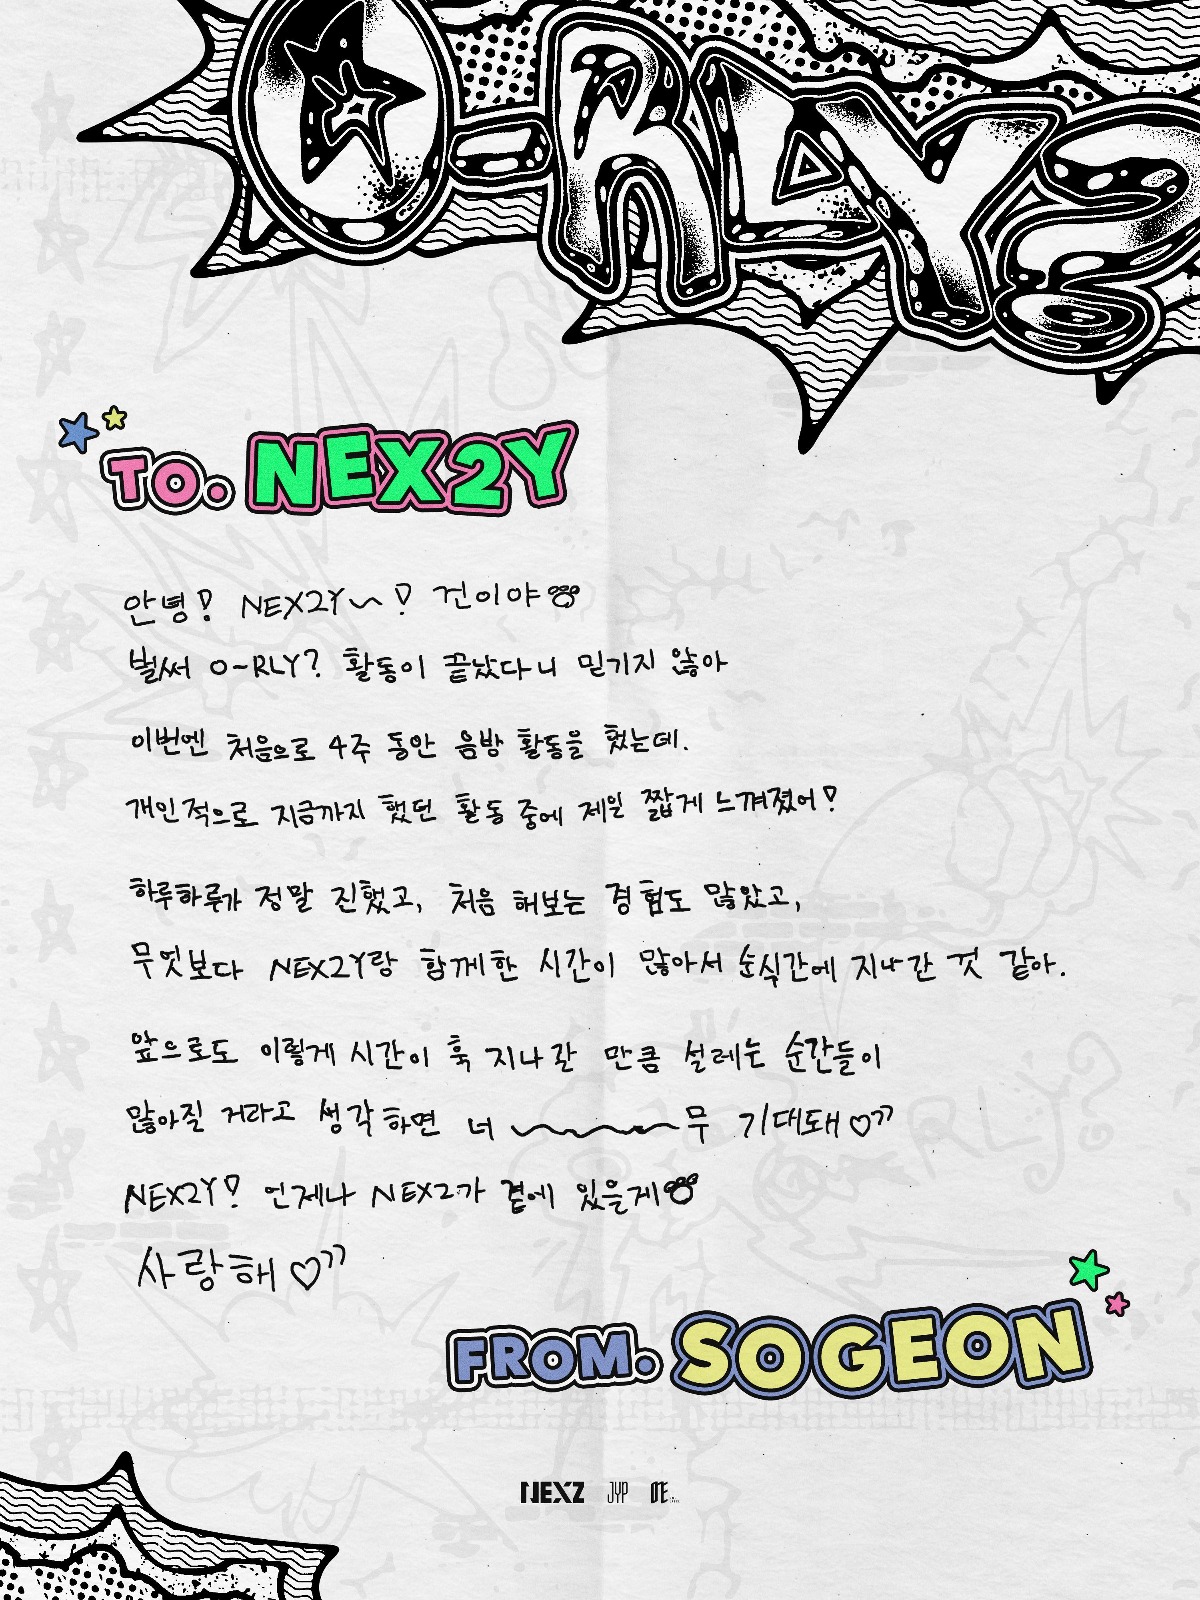 O-RLY?
TO. NEX2Y
안녕! NEX2Y~! 건이야
벌써 O-RLY? 활동이 끝났다니 믿기지 않아
이번엔 처음으로 4주 동안 음방 활동을 했는데.
개인적으로 지금까지 했던 활동 중에 제일 짧게 느껴졌어!
하루하루가 정말 진했고, 처음 해보는 경험도 많았고,
무엇보다 NEX2Y랑 함께한 시간이 많아서 순식간에 지나간 것 같아.
앞으로도 이렇게 시간이 훅 지나갈 만큼 설레는 순간들이
많아질 거라고 생각하면 너~무 기대돼♡
NEX2Y! 언제나 NEXZ가 곁에 있을게
사랑해♡
FROM. SOGEON
NEXZ JYP
RLY?